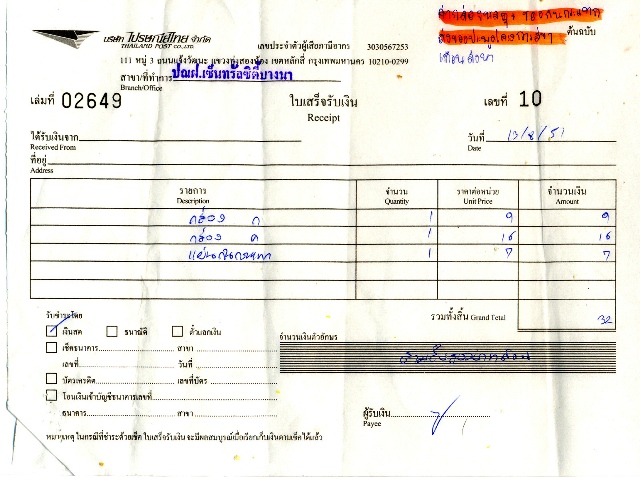 บริษัท ไปรษณีย์ไทย จำกัด
THAILAND POST CO.,LTD
เลขประจำตัวผู้เสียภาษีอากร 3030567253
ต้นฉบับ
111 หมู่ 3 ถนนแจ้งวัฒนะ แขวงทุ่งสองห้อง เขตหลักสี่ กรุงเทพมหานคร 10210-0299
สาขา/ที่ทำการ ปณฝ.เซ็นทรัลซิตี้บางนา
Branch/Office
เล่มที่ 02649 ใบเสร็จรับเงิน เลขที่ 10
Receipt
ได้รับเงินจาก วันที่ 13/8/51
Received From Date
ที่อยู่
Address
รายการ จำนวน ราคาต่อหน่วย จำนวนเงิน
Description Quantity Unit Price Amount
กล่อง ก 1 9 9
กล่อง ค 1 16 16
1 7 7
รับชำระโดย รวมทั้งสิ้น Grand Total 32
เงินสด ธนาณัติ ตั๋วแลกเงิน
จำนวนเงินตัวอักษร
เช็คธนาคาร สาขา
สามสิบสองบาทถ้วน
เลขที่ วันที่
บัตรเครดิต เลขที่บัตร
โอนเงินเข้าบัญชีธนาคารเลขที่
ธนาคาร สาขา
ผู้รับเงิน
Payee
หมายเหตุ ในกรณีที่ชำระด้วยเช็ค ใบเสร็จรับเงิน จะมีผลสมบูรณ์เมื่อเรียกเก็บเงินตามเช็คได้แล้ว